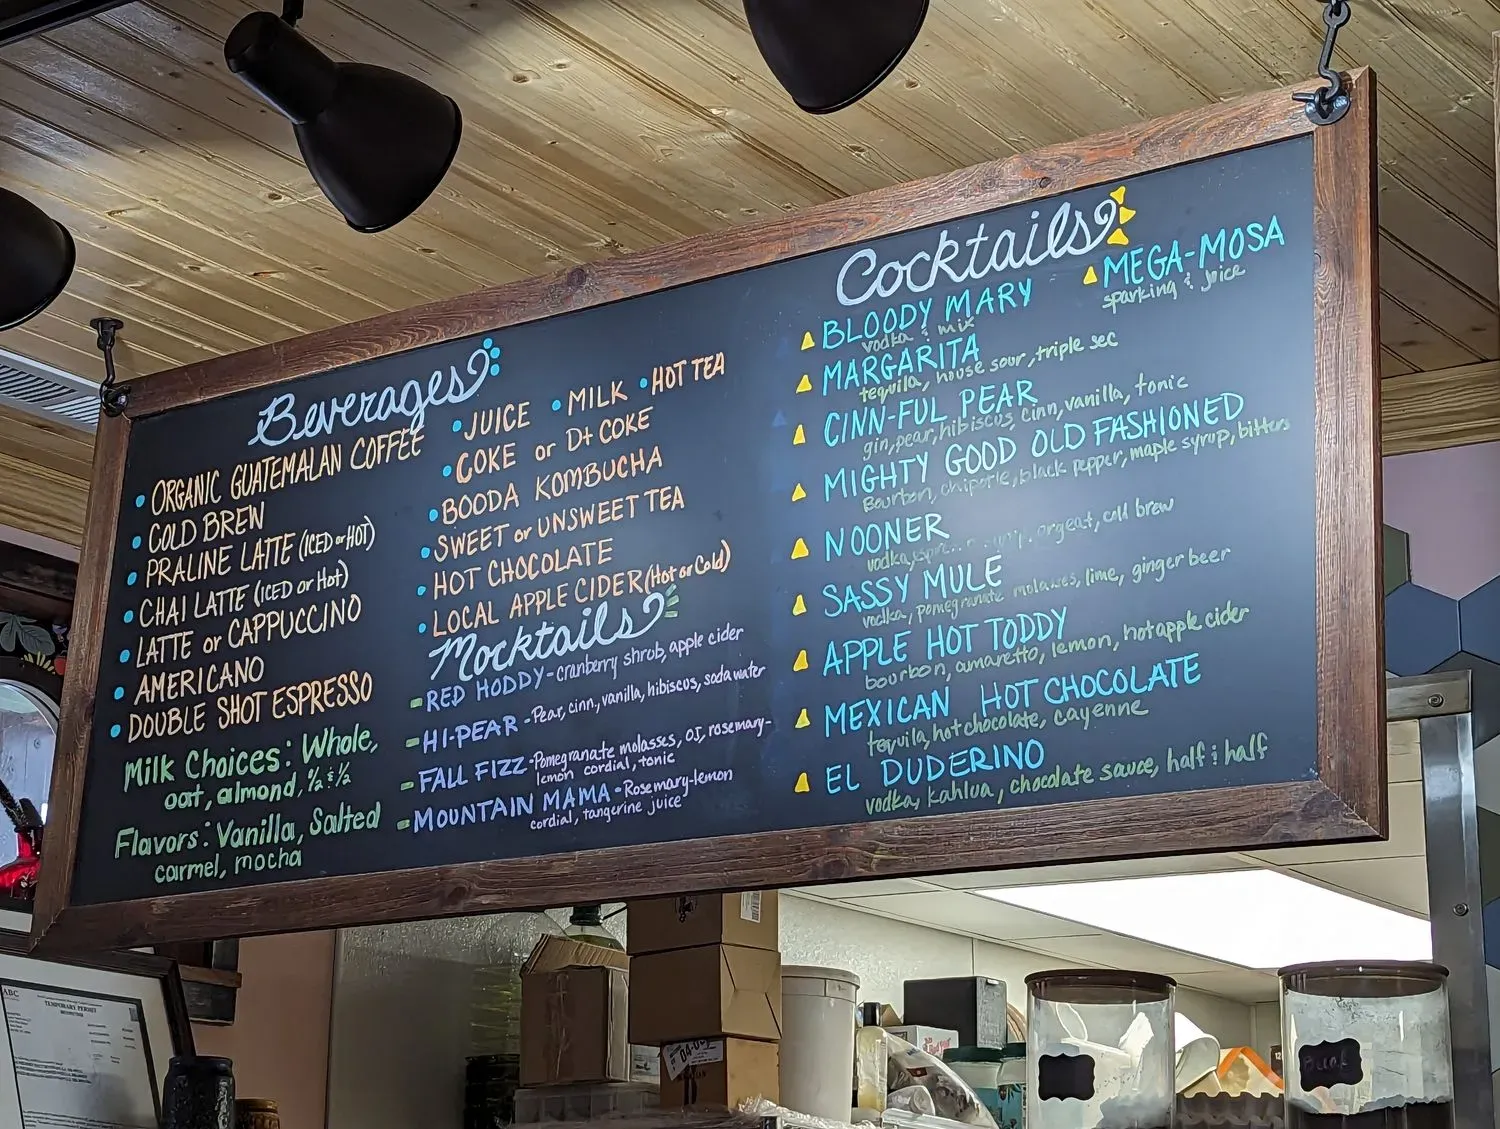 Beverages
• ORGANIC GUATEMALAN COFFEE
• COLD BREW
• PRALINE LATTE (ICED or HOT)
• CHAI LATTE (ICED or Hot)
• LATTE or CAPPUCCINO
• AMERICANO
• DOUBLE SHOT ESPRESSO
Milk Choices: Whole,
oat, almond, ½ & ½
Flavors: Vanilla, Salted
carmel, mocha
• JUICE • MILK • HOT TEA
• COKE or Dt COKE
• BOODA KOMBUCHA
• SWEET or UNSWEET TEA
• HOT CHOCOLATE
• LOCAL APPLE CIDER (Hot or Cold)
Mocktails
- RED HODDY - cranberry shrub, apple cider
- HI-PEAR - Pear, cinn, vanilla, hibiscus, soda water
- FALL FIZZ - Pomegranate molasses, OJ, rosemary-
lemon cordial, tonic
- MOUNTAIN MAMA - Rosemary-lemon
cordial, tangerine juice
Cocktails
BLOODY MARY
vodka & mix
MEGA-MOSA
sparking & juice
MARGARITA
tequila, house sour, triple sec
CINN-FUL PEAR
gin, pear, hibiscus, cinn, vanilla, tonic
MIGHTY GOOD OLD FASHIONED
Bourbon, chipotle, black pepper, maple syrup, bitters
NOONER
vodka, orgeat, cold brew
SASSY MULE
vodka, pomegranate molasses, lime, ginger beer
APPLE HOT TODDY
bourbon, amaretto, lemon, hot apple cider
MEXICAN HOT CHOCOLATE
tequila, hot chocolate, cayenne
EL DUDERINO
vodka, kahlua, chocolate sauce, half & half
ABC
TEMPORARY PERMIT
Decaf